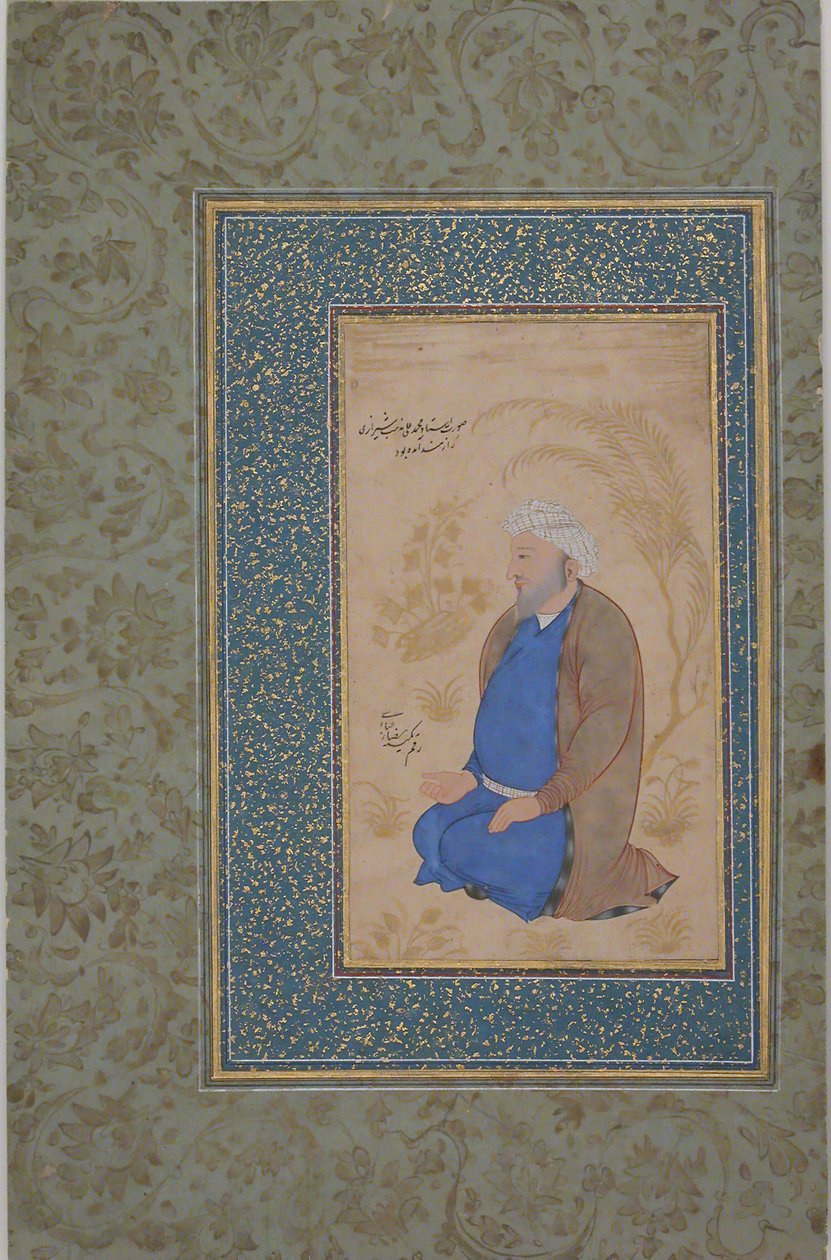 صورت استاد محمد علی مذهب شیرازی
که از هند آمده بود
رقم کمینه رضای
عباسی